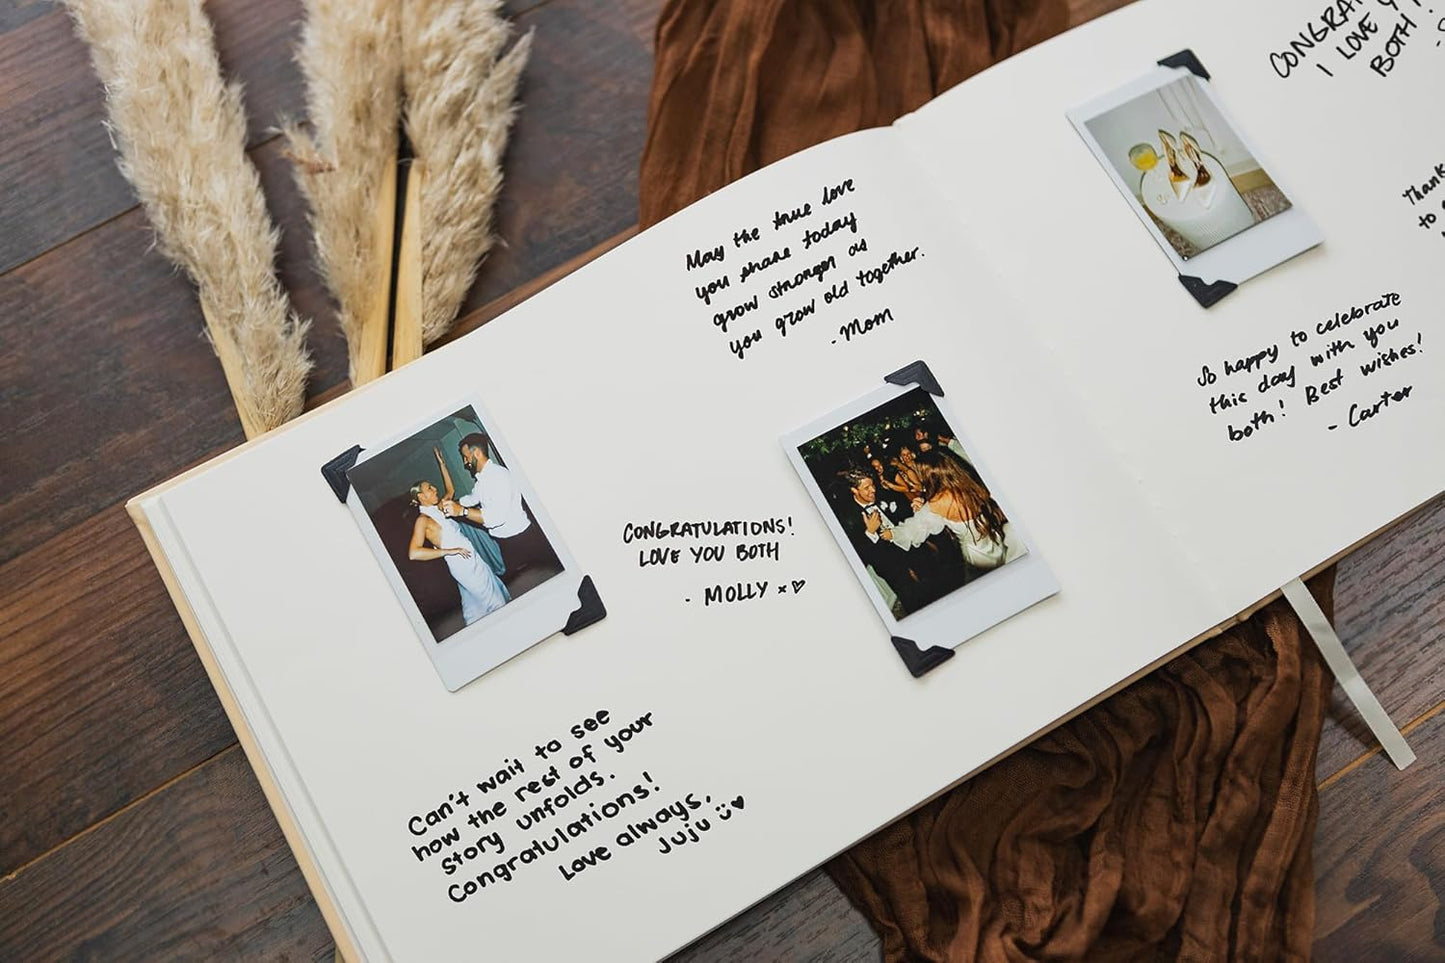 May the true love
you share today
grow stronger as
you grow old together.
- Mom
CONGRATULATIONS!
LOVE YOU BOTH
- MOLLY x♡
Can't wait to see
how the rest of your
story unfolds.
Congratulations!
Love always,
Juju ü♥
I LOVE
BOTH
Thank
to
So happy to celebrate
this day with you
both! Best wishes!
- Carter